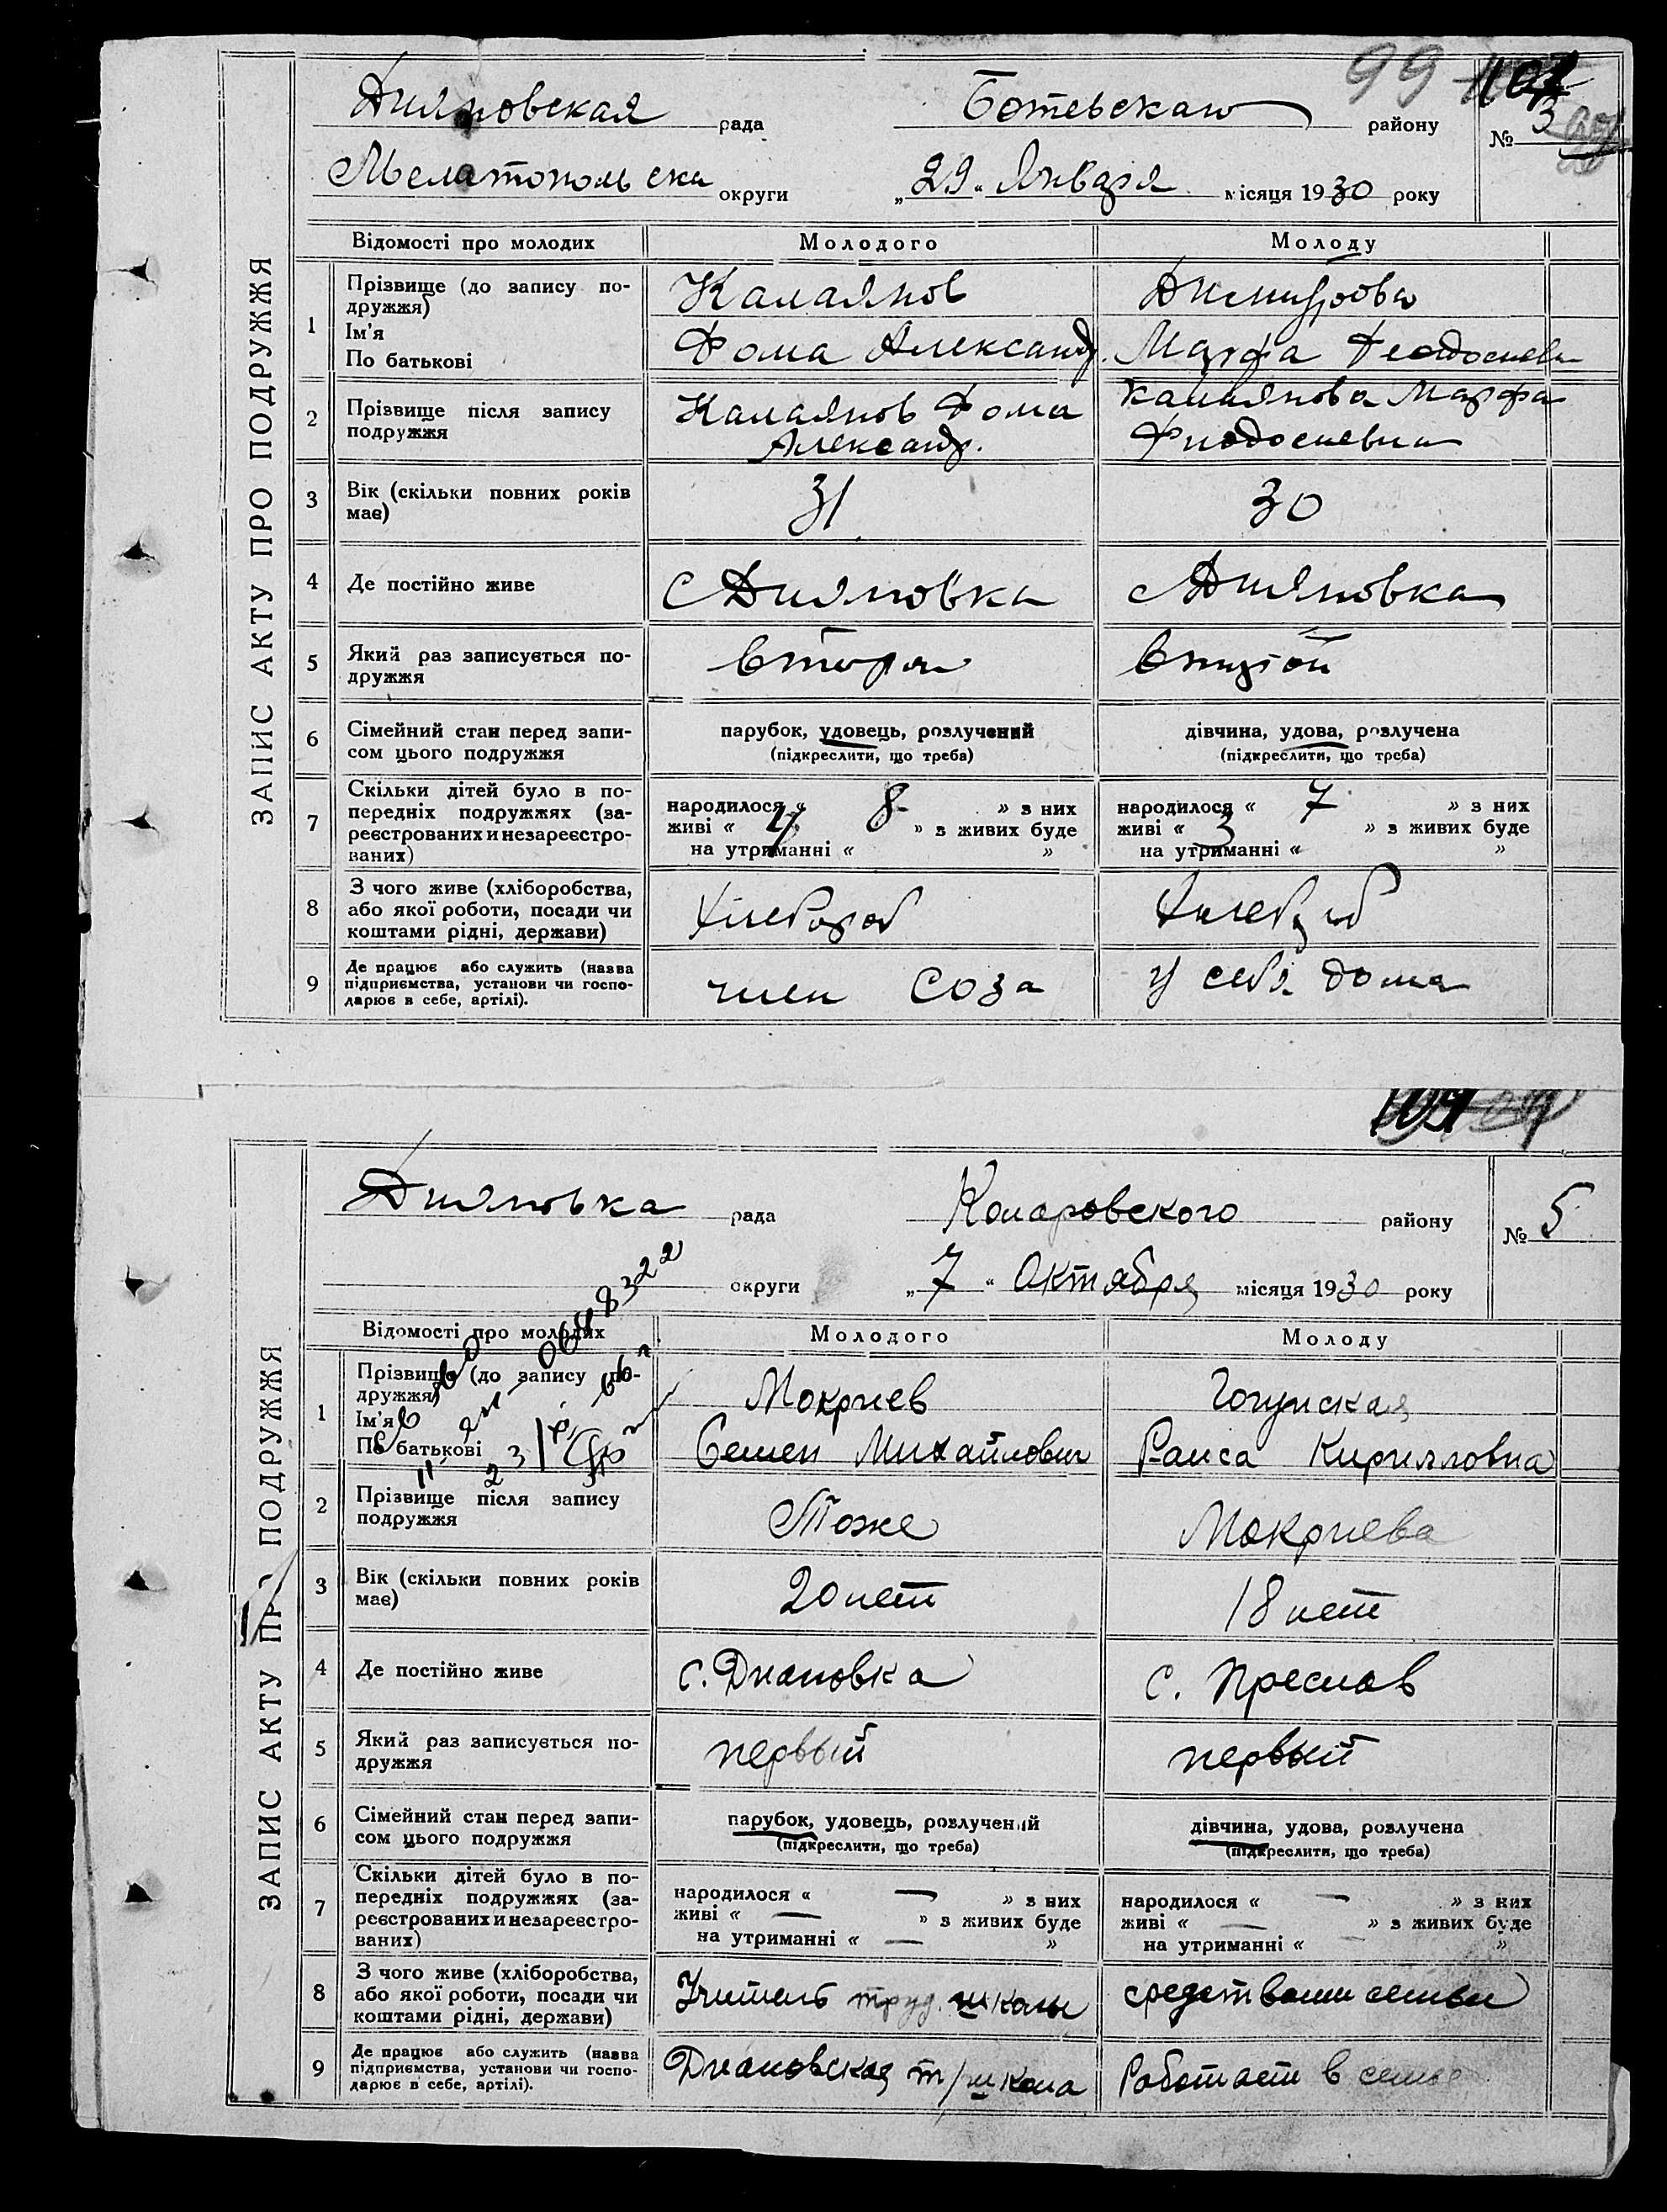 99
Дияновская рада Ботевскаго району
№ 3
Мелитопольска округи „29" Января місяця 1930 року
ЗАПИС АКТУ ПРО ПОДРУЖЖЯ
Відомості про молодих Молодого Молоду
1 Прізвище (до запису подружжя) Калаянов Димитрова
Ім'я
По батькові Фома Александ. Марфа Феодосиевн
2 Прізвище після запису подружжя Калаянов Фома Александр. Калаянова Марфа Фиодосиевна
3 Вік (скільки повних років має) 31 30
4 Де постійно живе с Дияновка с Дияновка
5 Який раз записується подружжя второй второй
6 Сімейний стан перед записом цього подружжя парубок, удовець, розлучений (підкреслити, що треба) дівчина, удова, розлучена (підкреслити, що треба)
7 Скільки дітей було в попередніх подружжях (зареєстрованих и незареєстрованих) народилося « 8 » з них живі « » з живих буде на утриманні « » народилося « 7 » з них живі « 3 » з живих буде на утриманні « »
8 З чого живе (хліборобства, або якої роботи, посади чи коштами рідні, держави) Хлебороб Хлебороб
9 Де працює або служить (назва підприємства, установи чи господарює в себе, артілі). член Соза у себя дома
Дияновка рада Комаровского району
№ 5
округи „7" Октября місяця 1930 року
ЗАПИС АКТУ ПРО ПОДРУЖЖЯ
Відомості про молодих Молодого Молоду
1 Прізвище (до запису подружжя) Мокриев
Ім'я
По батькові Семен Михайлович Раиса Кирилловна
2 Прізвище після запису подружжя Тоже Мокриева
3 Вік (скільки повних років має) 20 лет 18 лет
4 Де постійно живе с. Диановка с. Преслав
5 Який раз записується подружжя первый первый
6 Сімейний стан перед записом цього подружжя парубок, удовець, розлучений (підкреслити, що треба) дівчина, удова, розлучена (підкреслити, що треба)
7 Скільки дітей було в попередніх подружжях (зареєстрованих и незареєстрованих) народилося « — » з них живі « — » з живих буде на утриманні « — » народилося « — » з них живі « — » з живих буде на утриманні « »
8 З чого живе (хліборобства, або якої роботи, посади чи коштами рідні, держави) Учитель труд. школы средствами семьи
9 Де працює або служить (назва підприємства, установи чи господарює в себе, артілі). Диановская т/школа Работает в семье